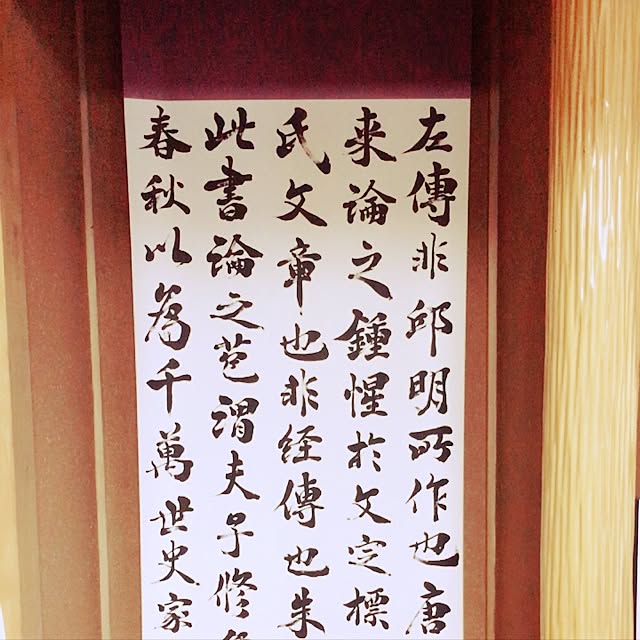 左傳非邱明所作也唐
来論之鍾惺於文定標
氏文章也非经傳也朱
此書論之苞謂夫子修
春秋以為千萬世史家